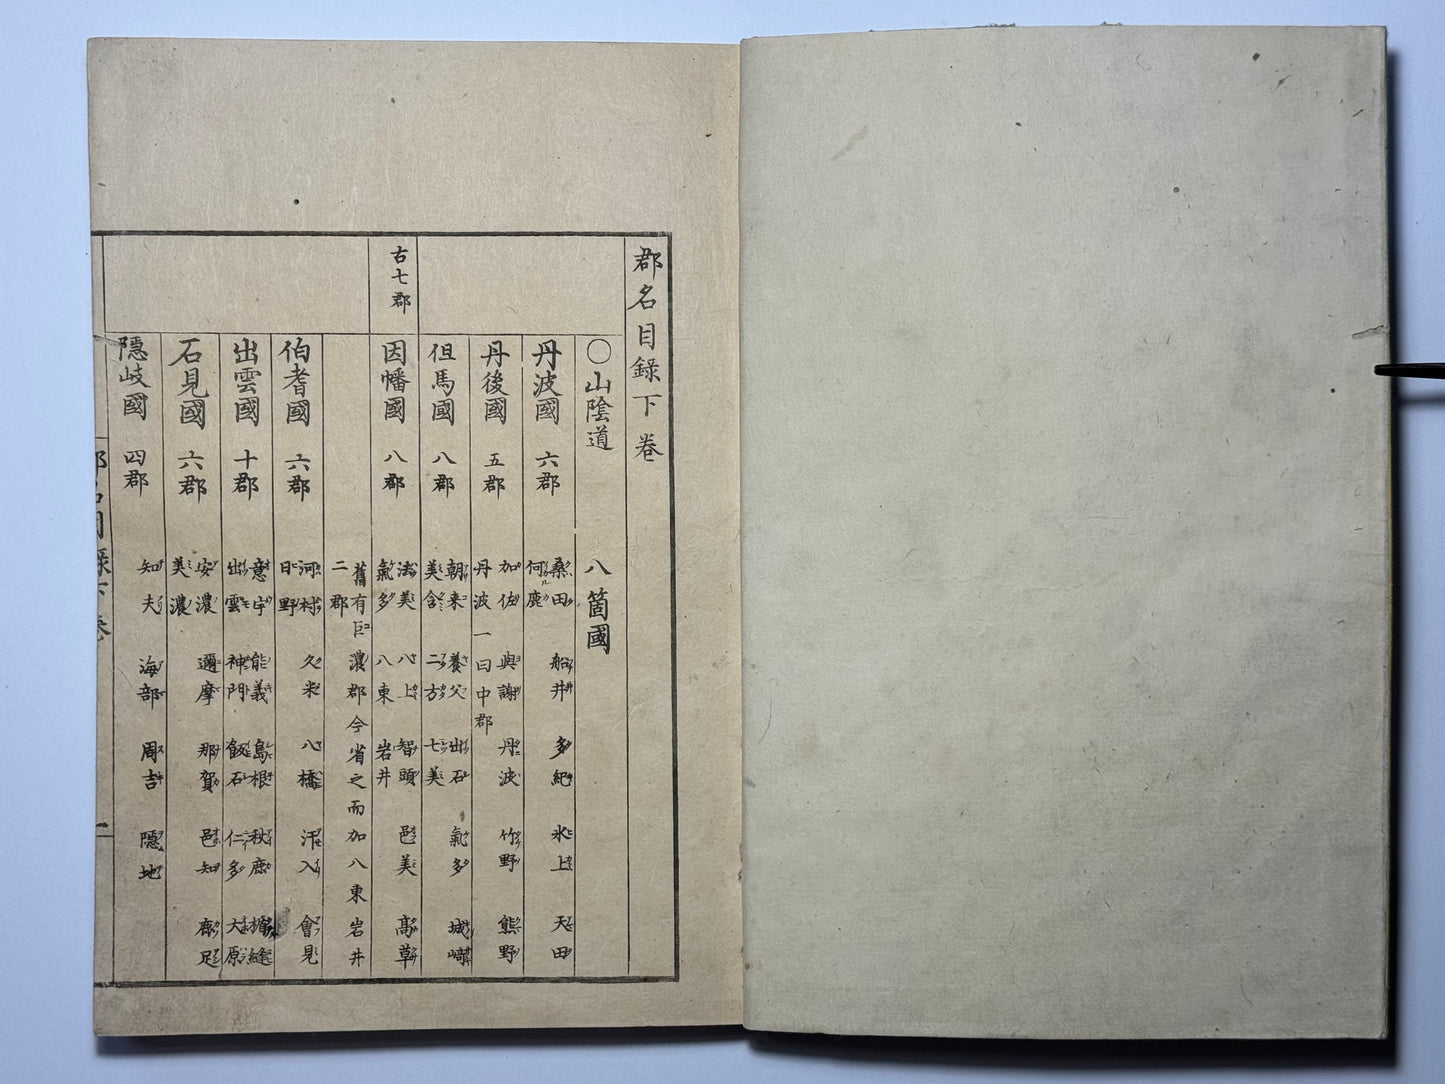 郡名目錄下卷
〇山陰道 八箇國
丹波國 六郡 桑田 船井 多紀 氷上 天田
何鹿
丹後國 五郡 加佐 與謝 丹波 竹野 熊野
丹波 一曰中郡
但馬國 八郡 朝来 養父 出石 氣多 城崎
美含 二方 七美
古七郡
因幡國 八郡 法美 八上 智頭 邑美 高草
氣多 八東 岩井
舊有巨濃郡今省之而加八東岩井
二郡
伯耆國 六郡 河村 久米 八橋 汗入 會見
日野
出雲國 十郡 意宇 能義 島根 秋鹿 楯縫
出雲 神門 飯石 仁多 大原
石見國 六郡 安濃 邇摩 那賀 邑知 鹿足
美濃
隠岐國 四郡 知夫 海部 周吉 隠地
郡名目錄下卷
一